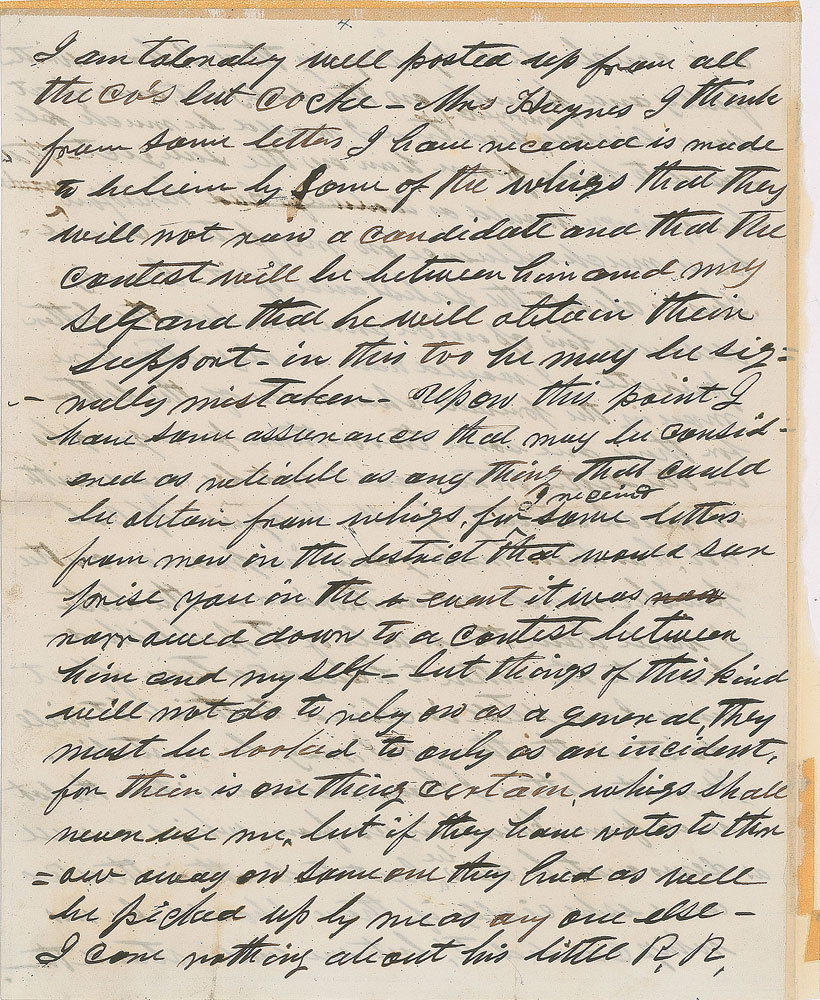 4
I am tolerably well posted up from all
the co's but Cocke – Mr Haynes I think
from some letters I have received is made
to believe by some of the whigs that they
will not run a candidate and that the
contest will be between him and my
self and that he will obtain their
support – in this too he may be sig=
– nally mistaken – Upon this point I
have some assurances that may be consid-
ered as reliable as any thing that could
I received
be obtain from whigs, for some letters
from men in the district that would sur
prise you in the event it was nar
narrowed down to a contest between
him and myself – but things of this kind
will not do to rely on as a general, they
must be looked to only as an incident,
for their is one thing certain, whigs shall
never use me, but if they have votes to thr
=ow away on some one they had as well
be picked up by me as any one else –
I care nothing about his little R. R.